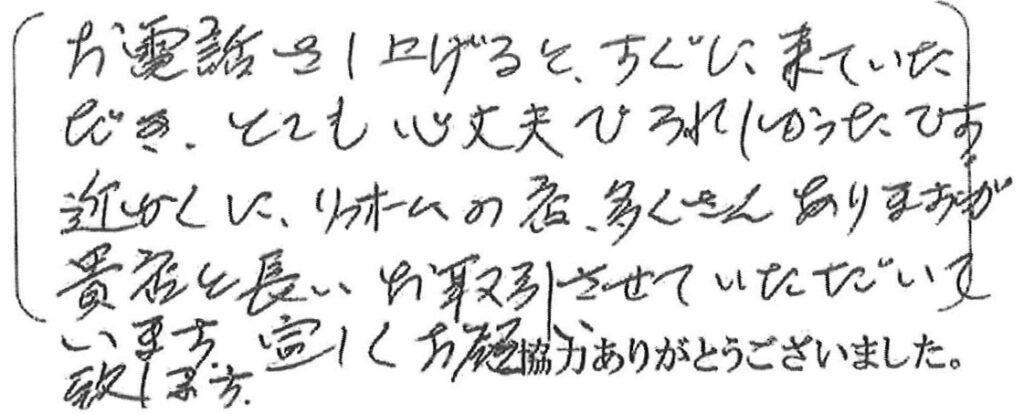 お電話をし上げると、すぐに来ていた
だき、とても心丈夫でうれしかったです。
近かくに、リフォームの店、多くさんありますが
貴店と長いお取引させていただいて
います。宜しくお願い協力ありがとうございました。
致します.